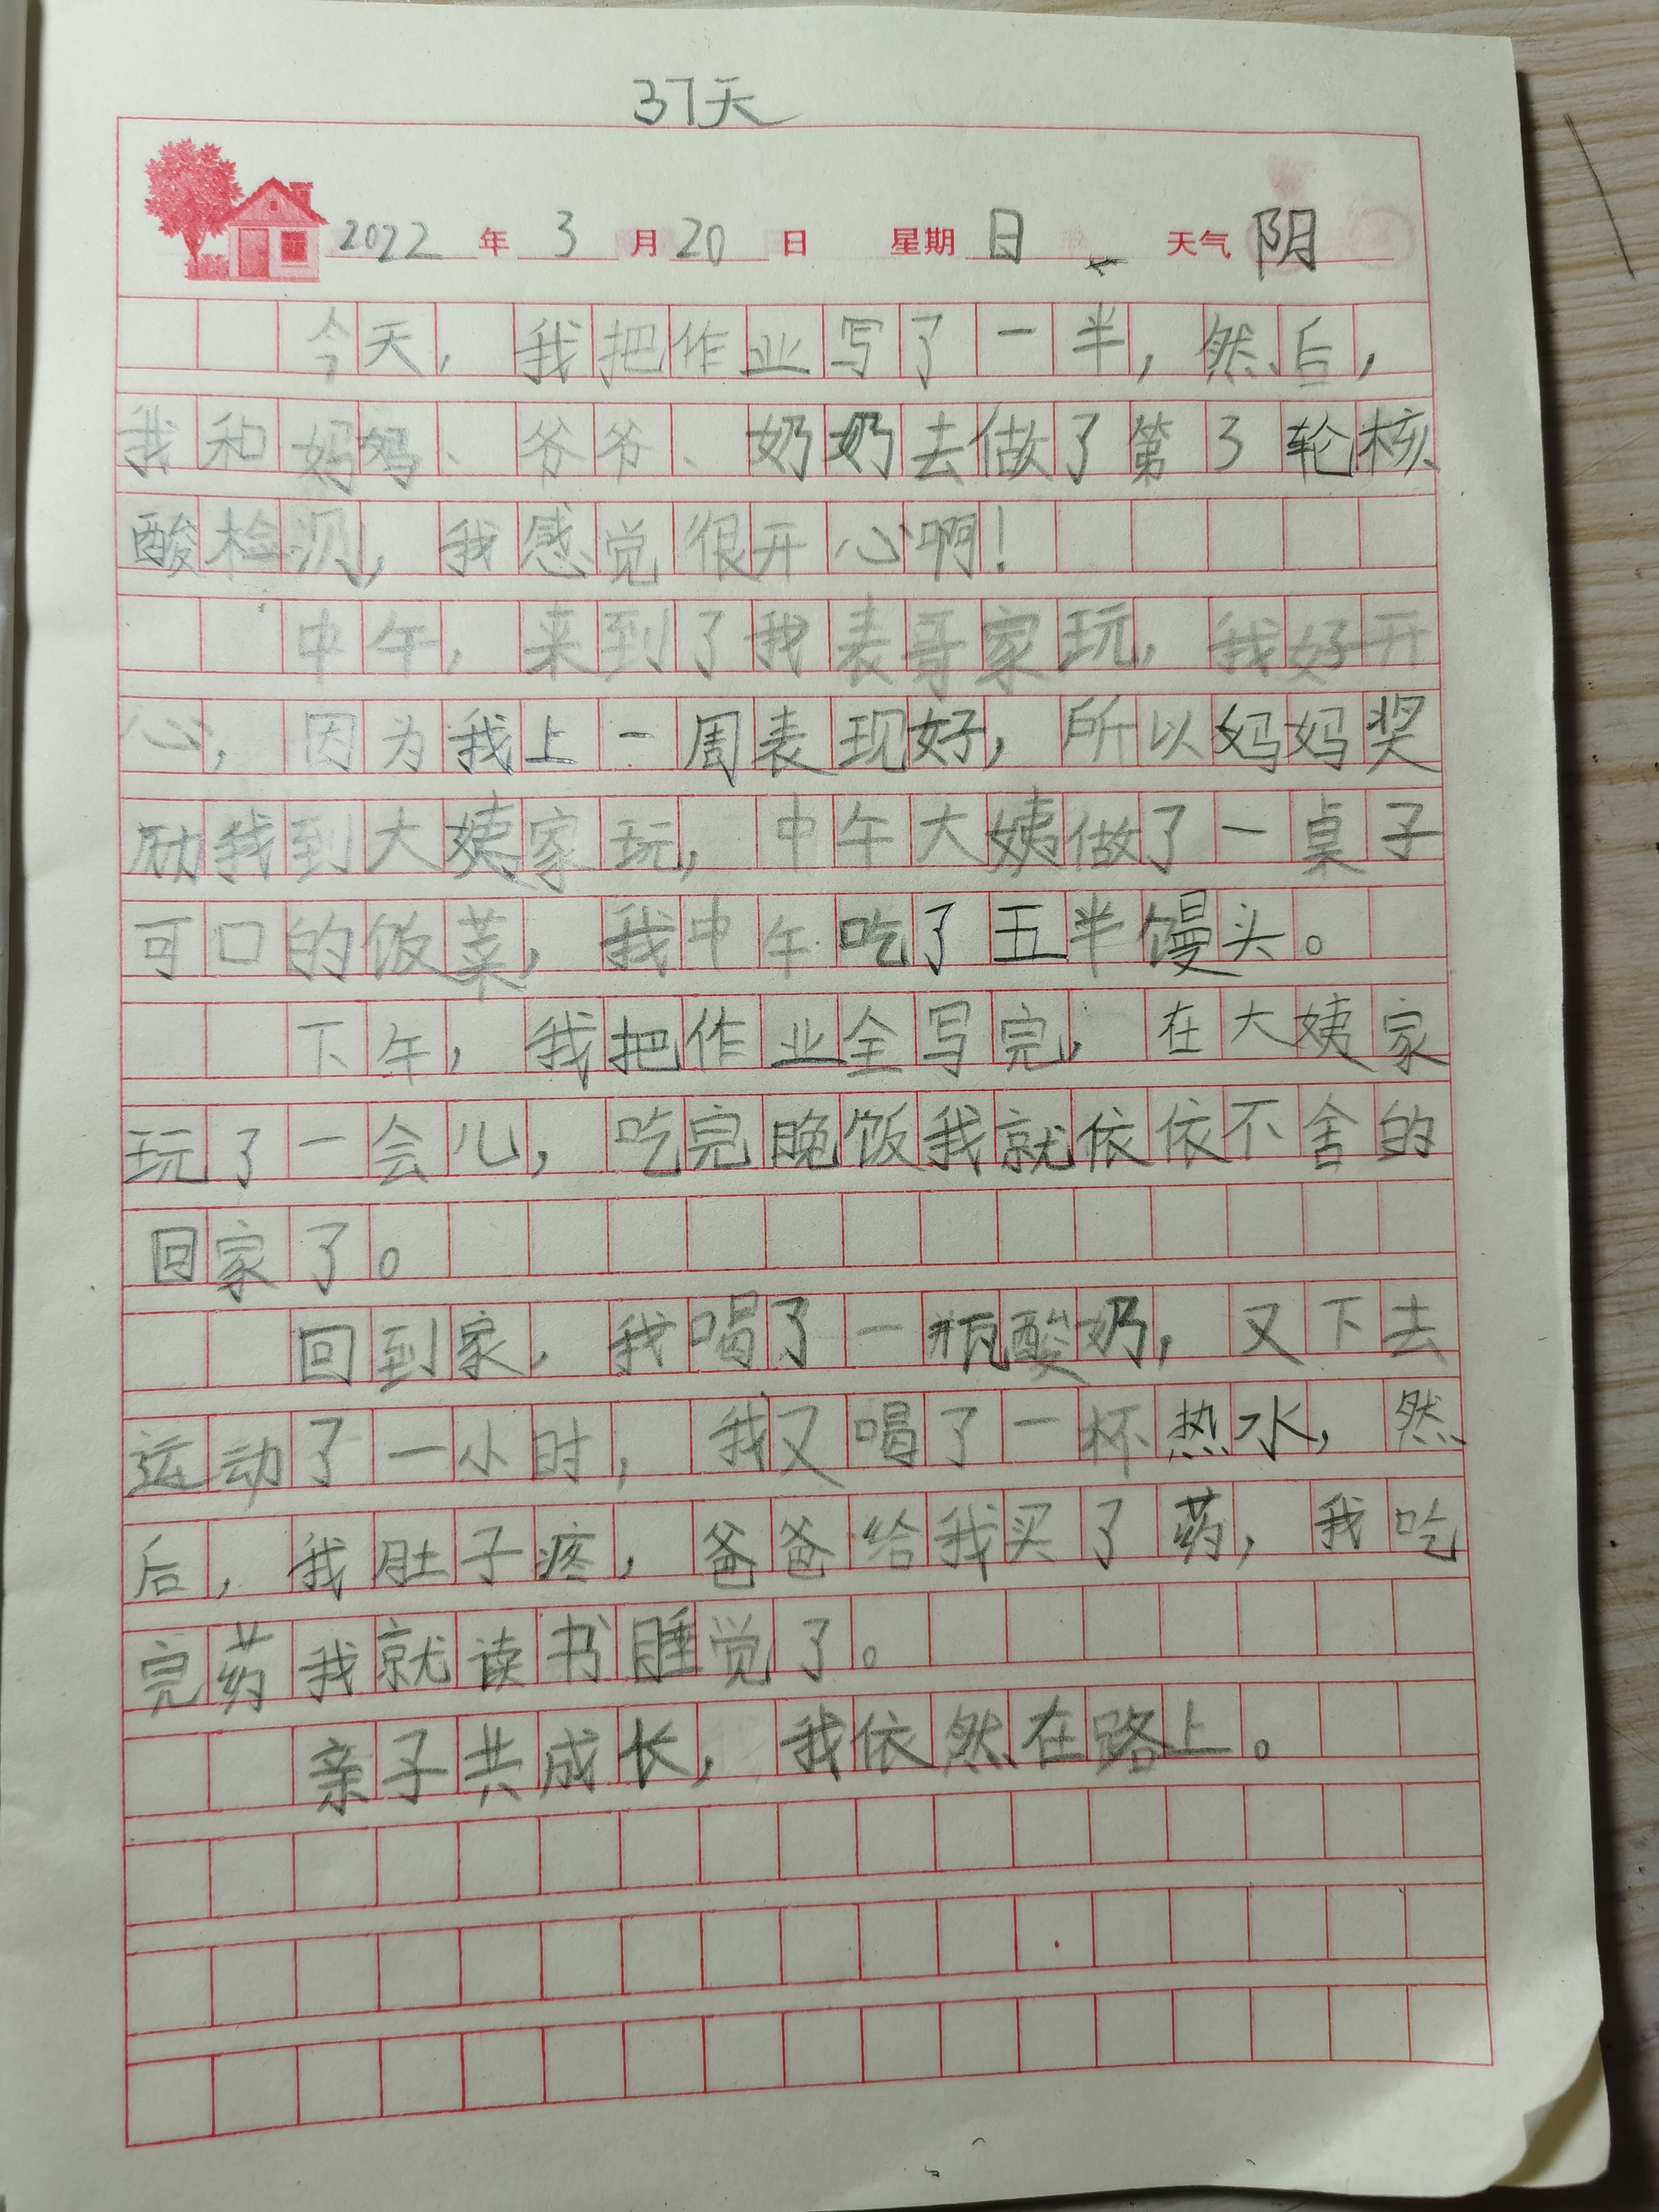 37天
2022年3月20日 星期日 天气阴
今天，我把作业写了一半，然后，
我和妈妈、爷爷、奶奶去做了第3轮核
酸检测，我感觉很开心啊！
中午，来到了我表哥家玩，我好开
心，因为我上一周表现好，所以妈妈奖
励我到大姨家玩，中午大姨做了一桌子
可口的饭菜，我中午吃了五半馒头。
下午，我把作业全写完，在大姨家
玩了一会儿，吃完晚饭我就依依不舍的
回家了。
回到家，我喝了一瓶酸奶，又下去
运动了一小时，我又喝了一杯热水，然
后，我肚子疼，爸爸给我买了药，我吃
完药我就读书睡觉了。
亲子共成长，我依然在路上。